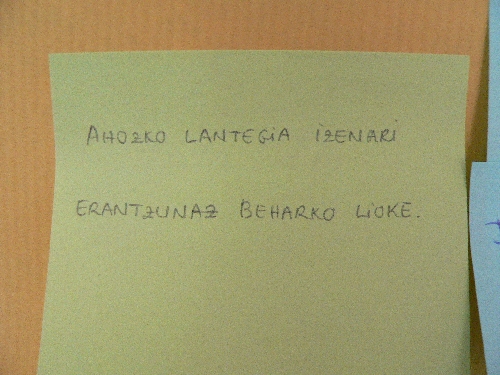 AHOZKO LANTEGIA IZENARI
ERANTZUNAZ BEHARKO LIOKE.